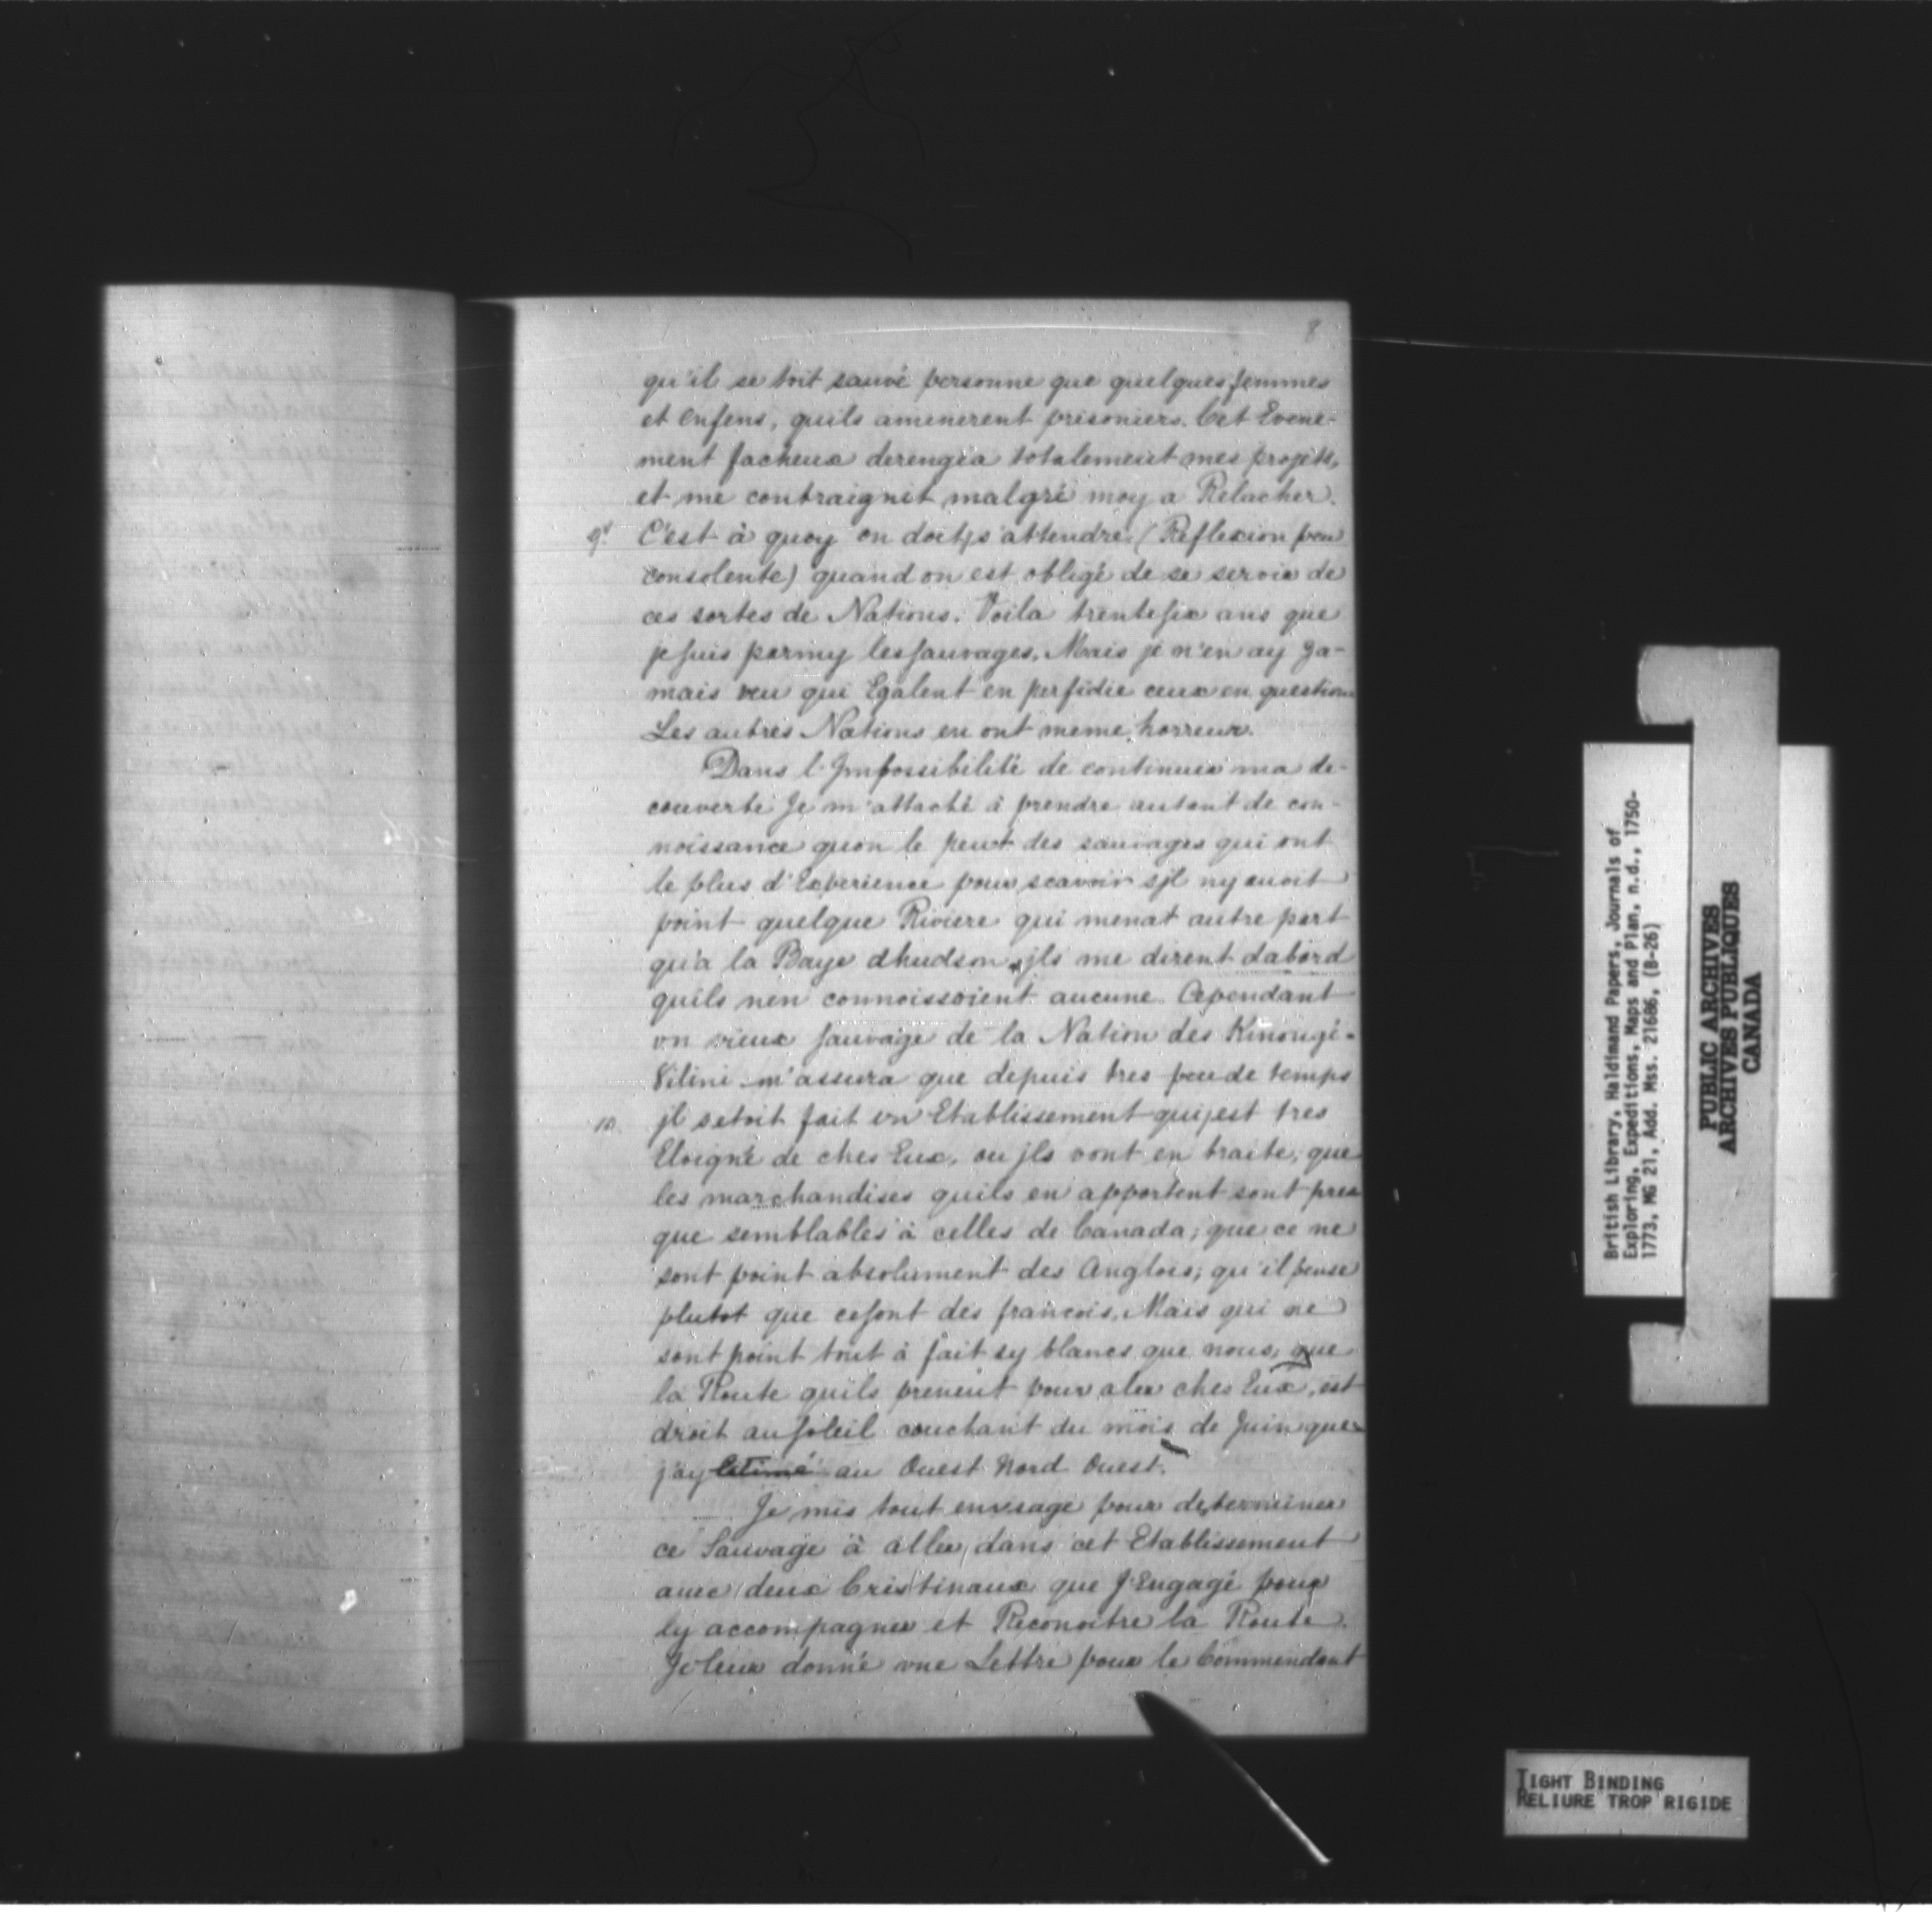 8
qu'il se soit sauvé personne que quelques femmes
et Enfens, quils amenerent prisoniers. Cet Evene-
ment facheux derengea totalement mes projets,
et me contraignit malgré moy a Relacher.
9. C'est à quoy on doit s'attendre (Reflexion peu
consolente) quand on est obligé de se servir de
ces sortes de Nations. Voila trentesix ans que
je suis parmy les sauvages, Mais je n'en ay Ja-
mais veu qui Egalent en perfidie ceux en question
Les autres Nations en ont meme horreur.
Dans l'Impossibilité de continuer ma de-
couverte Je m'attaché à prendre autant de con-
noissance quon le peut des sauvages qui ont
le plus d'Experience pour scavoir sjl ny auoit
point quelque Riviere qui menat autre part
qu'a la Baye dhudson, jls me dirent dabord
quils nen connoissoient aucune. Cependant
vn vieux sauvage de la Nation des Kinongé-
Vilini m'assura que depuis tres peu de temps
10. jl setoit fait vn Etablissement qui est tres
Eloigné de ches Eux, ou jls vont en traite, que
les marchandises quils en apportent sont pres
que semblables à celles de Canada; que ce ne
sont point absolument des Anglois; qu'il pense
plutot que cesont des francois, Mais qui ne
sont point tout à fait sy blancs que nous, que
la Route quils prenent pour aler ches Eux, est
droit au soleil couchant du mois de Juin que
j'ay Estimé au Ouest Nord Ouest.
Je mis tout envsage pour determiner
ce Sauvage à aller dans cet Etablissement
auec deux Cristinaux que J'Engagé pour
ly accompagner et Reconoitre la Route.
Je leur donné vne Lettre pour le Commendant
British Library, Haldimand Papers, Journals of
Exploring, Expeditions, Maps and Plan, n.d., 1750-
1773, MG 21, Add. Mss. 21686, (B-26)
PUBLIC ARCHIVES
ARCHIVES PUBLIQUES
CANADA
TIGHT BINDING
RELIURE TROP RIGIDE